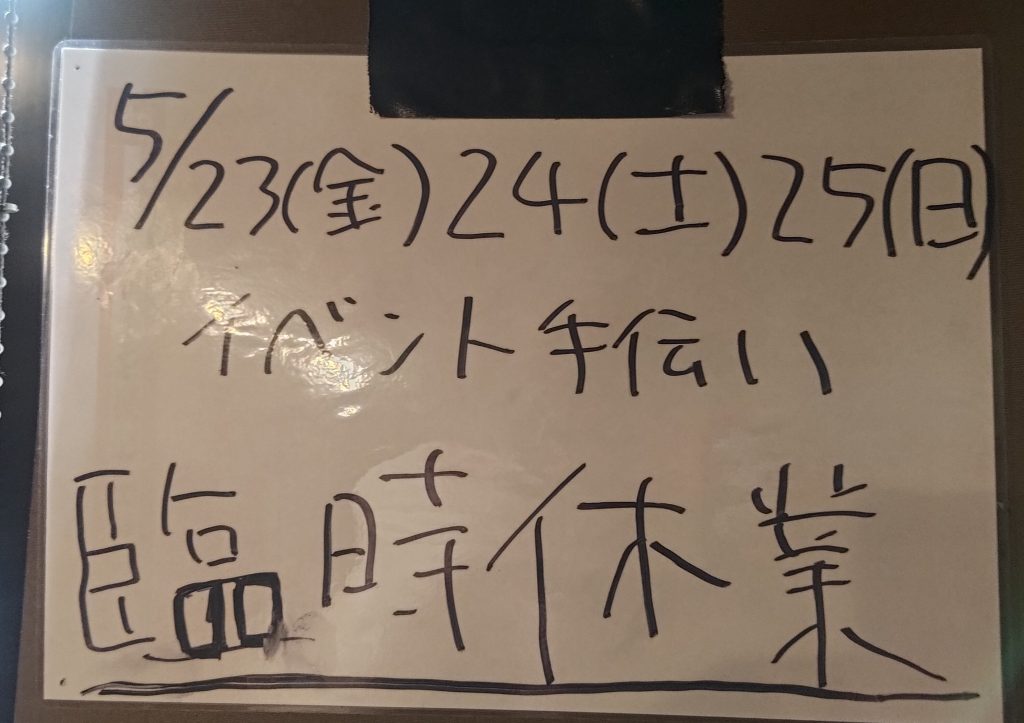 5/23(金)24(土)25(日)
イベント手伝い
臨時休業